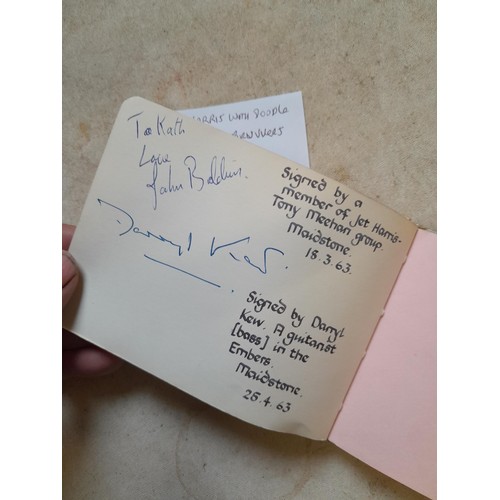 ARRIS WITH
To Kath
Love
John Baldwin.
Signed by a
member of Jet Harris-
Tony Meehan group.
Maidstone.
18.3.63.
Darryl Kew.
Signed by Darryl
Kew. A guitarist
[bass] in the
Embers.
Maidstone.
25.4.63